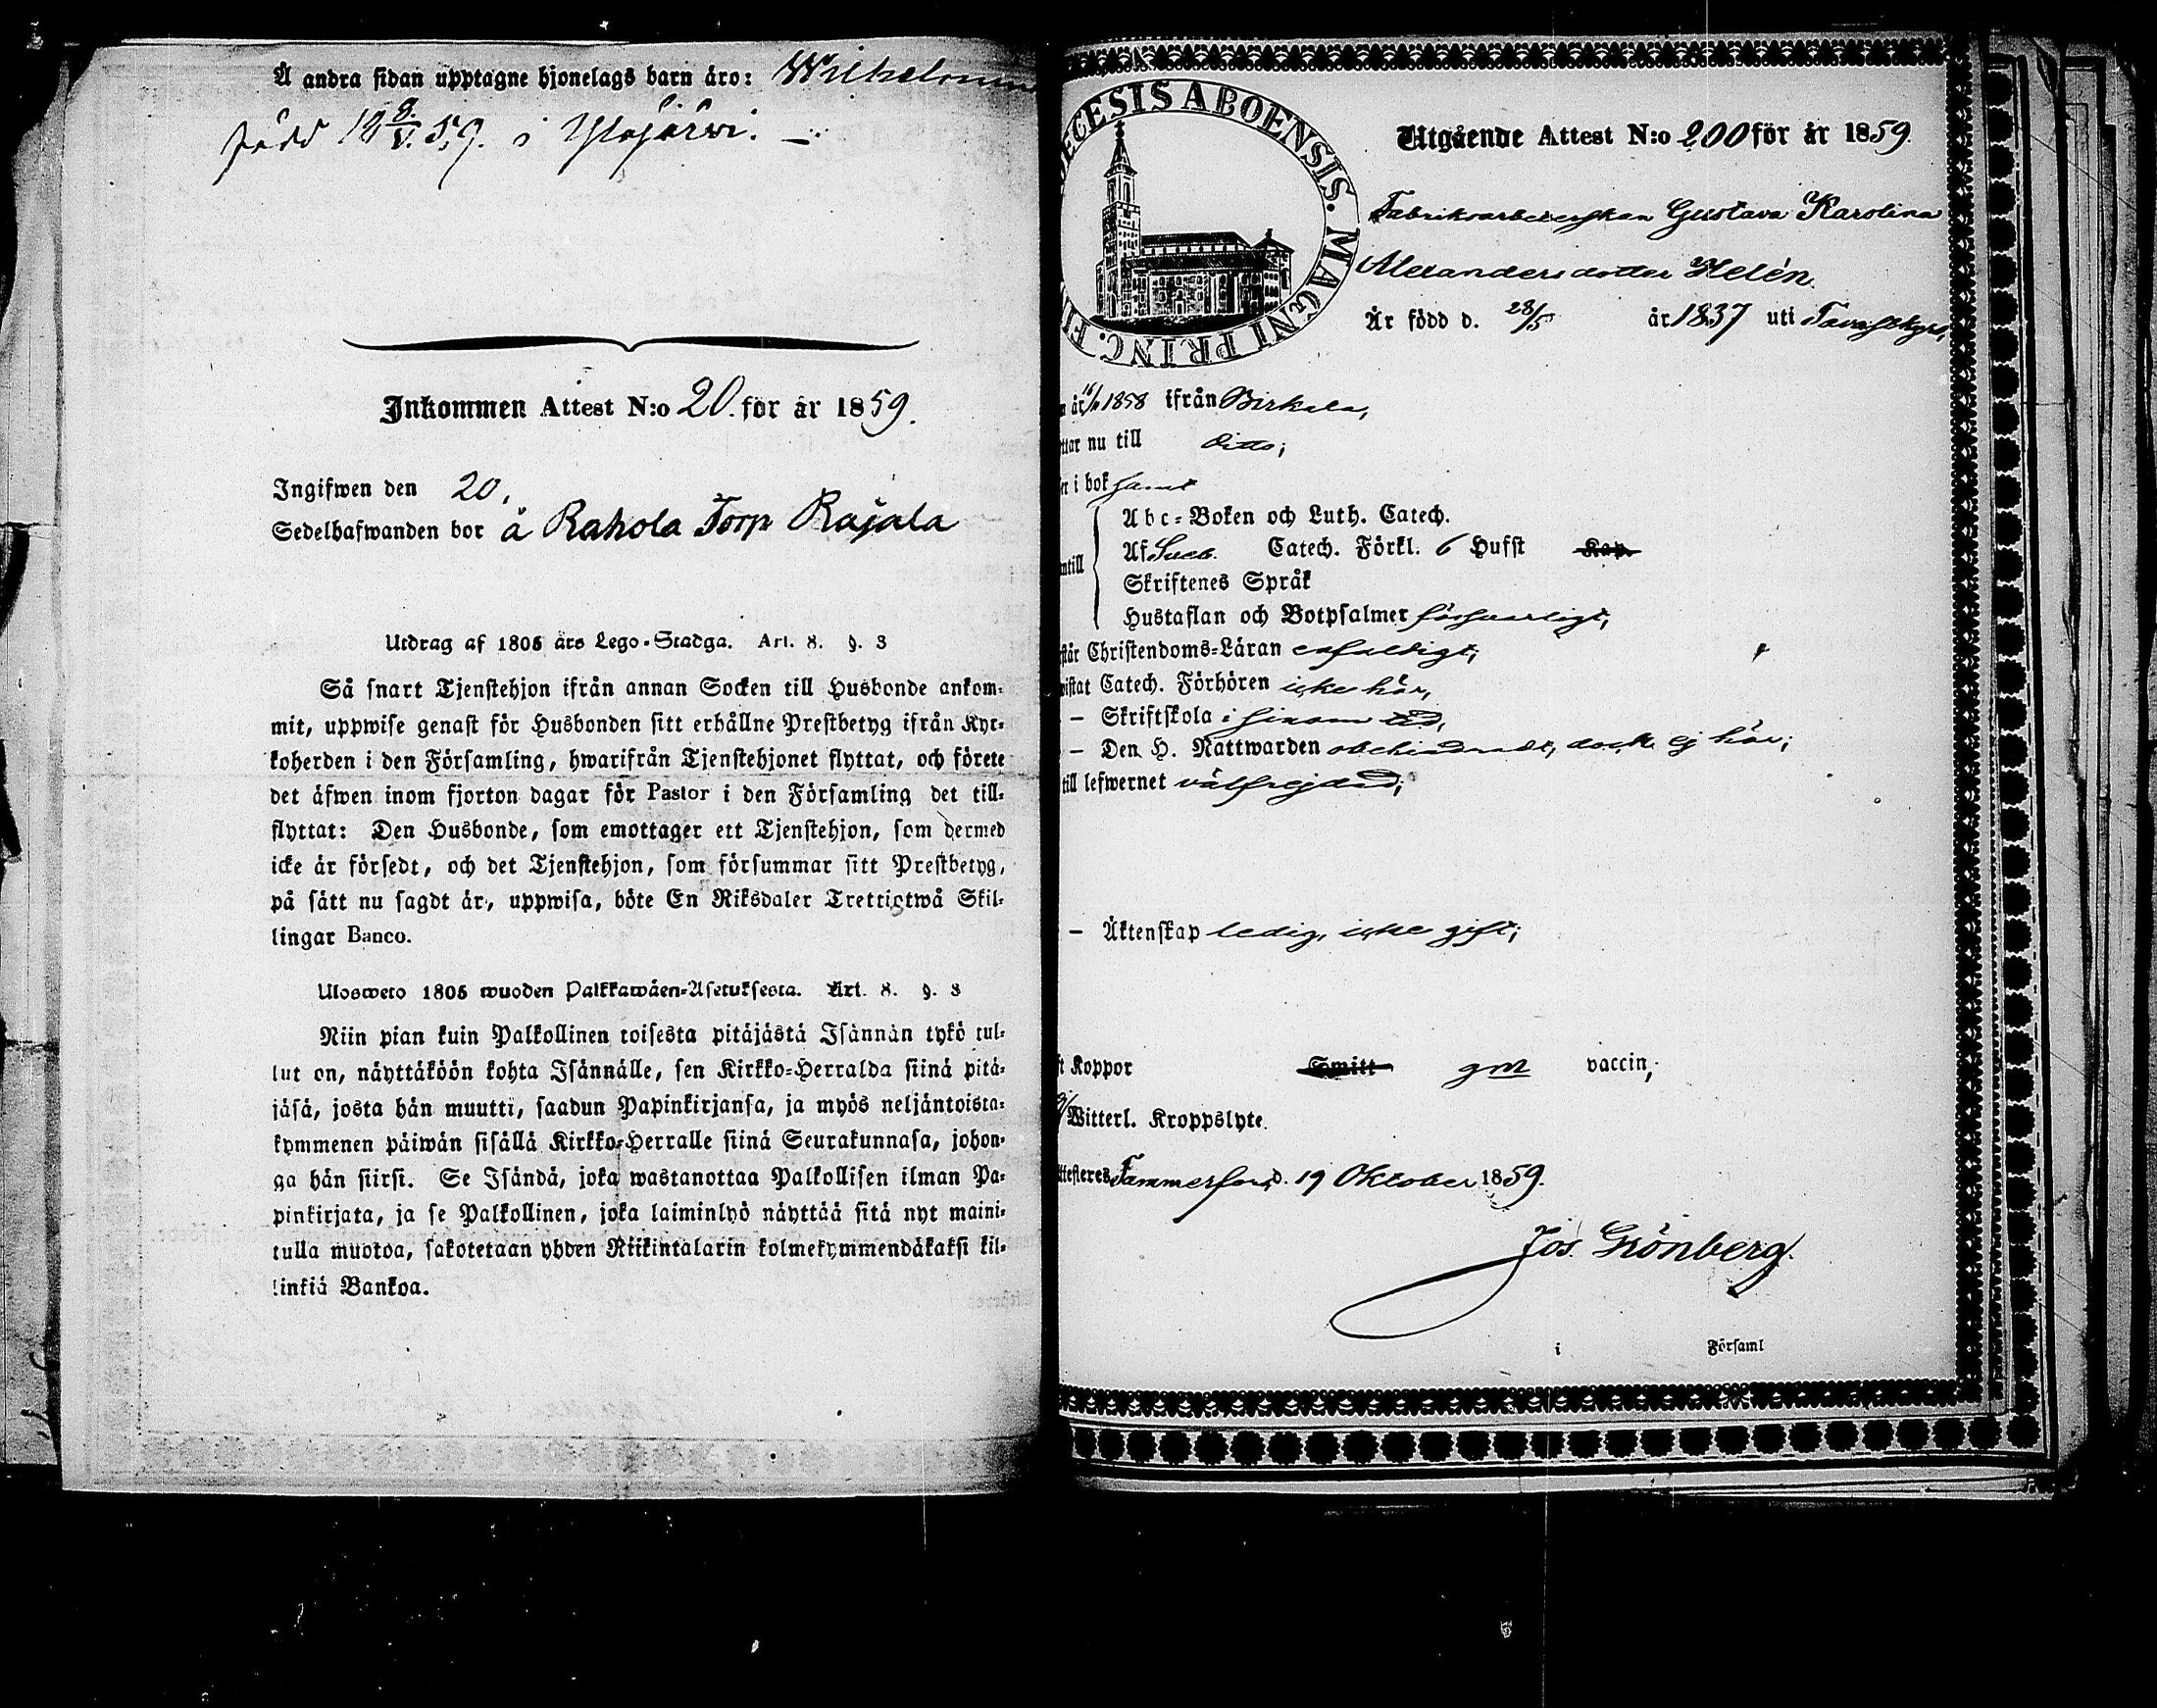 Å andra sidan upptagne hjonelags barn äro: Wilhelmina
född 18 8/5. 59. i Ylöjärwi.
Inkommen Attest N:o 20. för år 1859.
Ingifwen den 20.
Sedelhafwanden bor å Rahola Torp Rajala
Utdrag af 1805 års Lego-Stadga. Art. 8. §. 3
Så snart Tjenstehjon ifrån annan Socken till Husbonde ankom-
mit, uppwise genast för Husbonden sitt erhållne Prestbetyg ifrån Kyr-
koherden i den Församling, hwarifrån Tjenstehjonet flyttat, och förete
det äfwen inom fjorton dagar för Pastor i den Församling det till-
flyttat: Den Husbonde, som emottager ett Tjenstehjon, som dermed
icke är försedt, och det Tjenstehjon, som försummar sitt Prestbetyg,
på sätt nu sagdt är, uppwisa, böte En Riksdaler Trettiotwå Skil-
lingar Banco.
Ulosweto 1805 wuoden Palkkawäen-Asetuksesta. Art. 8. §. 3
Niin pian kuin Palkollinen toisesta pitäjästä Isännän tykö tul-
lut on, näyttäköön kohta Isännälle, sen Kirkko-Herralda siinä pitä-
jäsä, josta hän muutti, saadun Papinkirjansa, ja myös neljäntoista-
kymmenen päiwän sisällä Kirkko-Herralle siinä Seurakunnasa, johon-
ga hän siirsi. Se Isändä, joka wastanottaa Palkollisen ilman Pa-
pinkirjata, ja se Palkollinen, joka laiminlyö näyttää sitä nyt maini-
tulla muotoa, sakotetaan yhden Riikintalarin kolmekymmendäkaksi kil-
linkiä Bankoa.
ECESIS ABOENSIS. MAGNI PRINC. FI
Utgående Attest N:o 200 för år 1859.
Fabriksarbeterskan Gustava Karolina
Alexandersdotter Helén
Är född d. 28/5 år 1837 uti Tavastkyro,
år 1858 ifrån Birkala,
ttar nu till ditto;
er i bok samt
Abc-Boken och Luth. Catech.
Af Sveb. Catech. Förkl. 6 Hufst Kap.
ntill
Skriftenes Språk
Hustaflan och Botpsalmer försvarligt,
står Christendoms-Läran enfaldigt;
wistat Catech. Förhören icke här,
— Skriftskola i sinom tid,
— Den H. Nattwarden obehindradt, dock ej här;
till lefwernet välfrejdad;
— Äktenskap ledig, icke gift;
ft Koppor Smitt gm vaccin,
Witterl. Kroppslyte.
ttesteres Tammerfors d. 19 Oktober 1859.
Jos. Grönberg.
i Församl